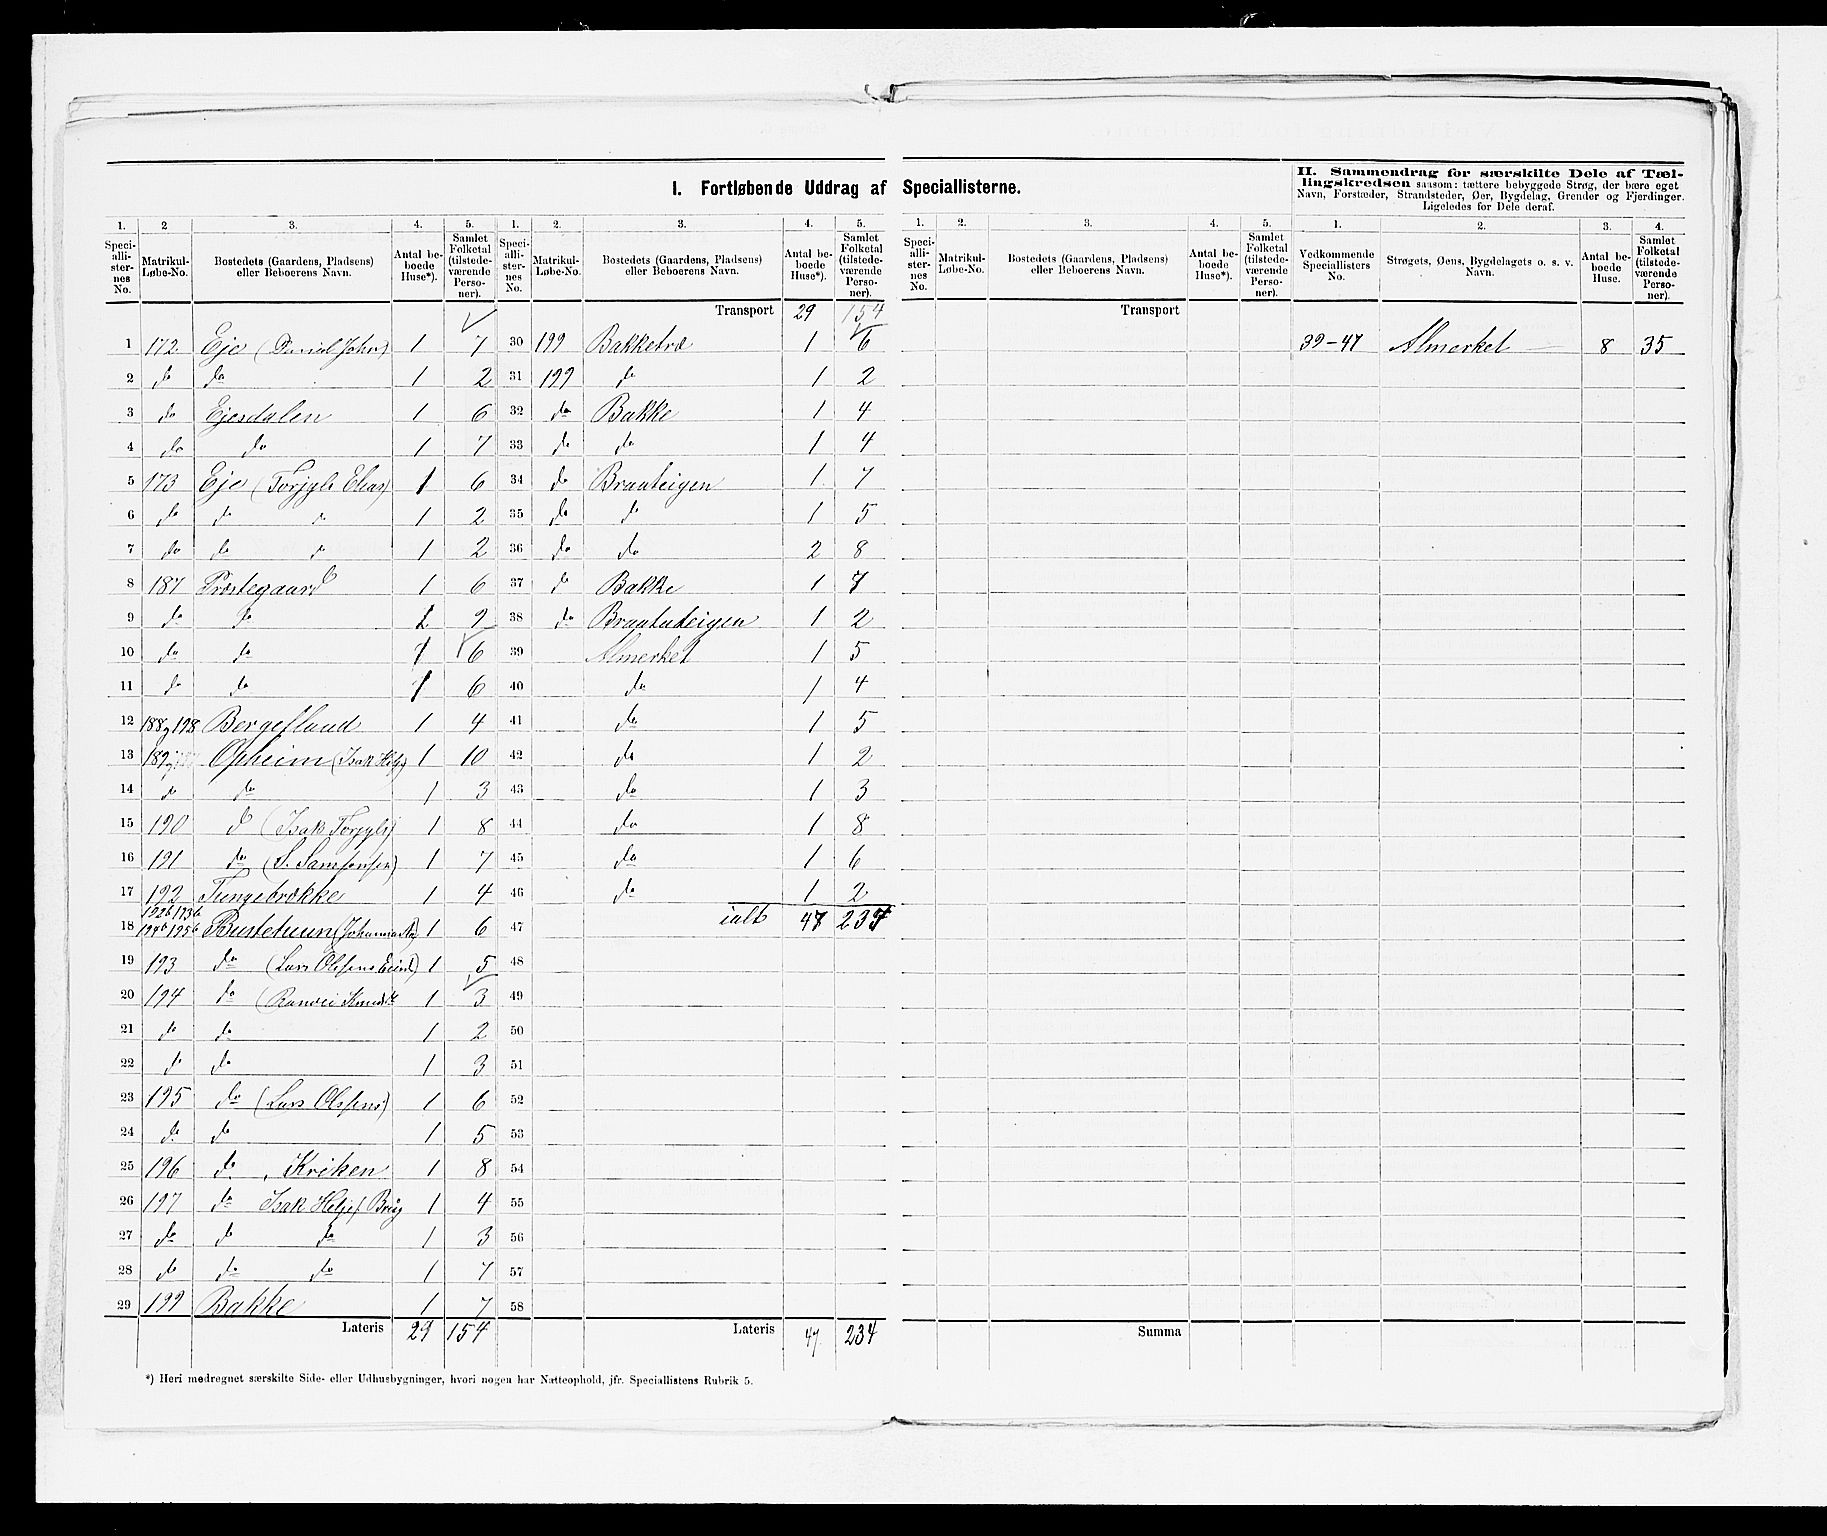 I. Fortløbende Uddrag af Speciallisterne.
II. Sammendrag for særskilte Dele af Tællingskredsen saasom: tættere bebyggede Strøg, der bære eget
Navn, Forstæder, Strandsteder, Øer, Bygdelag, Grender og Fjerdinger.
Ligeledes for Dele deraf.
1. 2 3. 4. 5. 1. 2. 3. 4. 5. 1. 2. 3. 4. 5. 1. 2. 3. 4.
Speciallisternes No. Matrikul-Løbe-No. Bostedets (Gaardens, Pladsens) eller Beboerens Navn. Antal beboede Huse*). Samlet Folketal (tilstedeværende Personer).
Speciallisternes No. Matrikul-Løbe-No. Bostedets (Gaardens, Pladsens) eller Beboerens Navn. Antal beboede Huse*). Samlet Folketal (tilstedeværende Personer).
Speciallisternes No. Matrikul-Løbe-No. Bostedets (Gaardens, Pladsens) eller Beboerens Navn. Antal beboede Huse*). Samlet Folketal (tilstedeværende Personer).
Vedkommende Speciallisters No. Strøgets, Øens, Bygdelagets o. s. v. Navn. Antal beboede Huse. Samlet Folketal (tilstedeværende Personer).
1 172 Eje (Daniel John) 1 7
2 do do 1 2
3 do Ejesdalen 1 6
4 do do 1 7
5 173 Eje (Torjyls Elias) 1 6
6 do do do 1 2
7 do do do 1 2
8 187 Præstegaard 1 6
9 do do 1 2
10 do do 1 6
11 do do 1 6
12 188 og 198 Bergesland 1 4
13 189 og Opheim (Isak Helj) 1 10
14 do do 1 3
15 190 do (Isak Torjyls) 1 8
16 191 do (S. Samsonsen) 1 7
17 192 Tungebrække 1 4
192b 193b
18 194b 195b Bustetuun (Johanna 1 6
19 193 do (Lars Olsens 1 5
20 194 do (Randei 1 3
21 do do 1 2
22 do do 1 3
23 195 do (Lars Olsens) 1 6
24 do do 1 5
25 196 do, Kriken 1 8
26 197 do Isak Heljes Brug 1 4
27 do do do 1 3
28 do do do 1 7
29 199 Bakke 1 7
Lateris 29 154
Transport 29 154
30 199 Bakketræ 1 6
31 199 do 1 2
32 do Bakke 1 4
33 do do 1 4
34 do Brauteigen 1 7
35 do do 1 5
36 do do 2 8
37 do Bakke 1 7
38 do Braututeigen 1 2
39 Almerket 1 5
40 do 1 4
41 do 1 5
42 do 1 2
43 do 1 3
44 do 1 8
45 do 1 6
46 do 1 2
47 ialt 47 234
48
49
50
51
52
53
54
55
56
57
58
Lateris 47 234
Transport
Summa
39-47 Almerket 8 35
*) Heri medregnet særskilte Side- eller Udhusbygninger, hvori nogen har Natteophold, jfr. Speciallistens Rubrik 5.